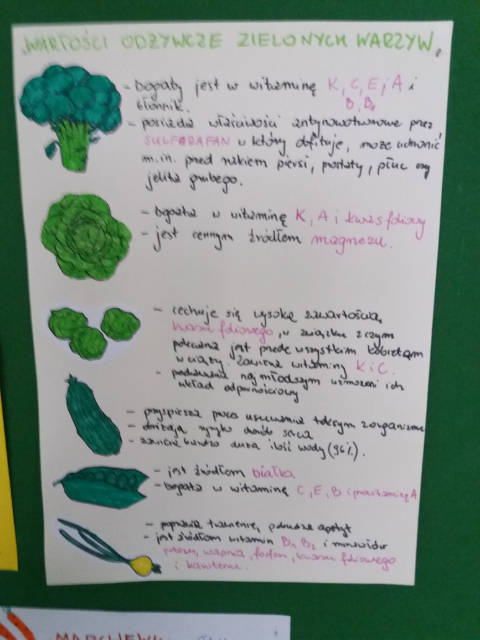 WARTOŚCI ODŻYWCZE ZIELONYCH WARZYW.
- bogaty jest w witaminę K, C, E, A i
B, B₂
błonnik.
- posiada właściwości antynowotworowe przez
SULFORAFAN w który obfituje, może uchronić
m.in. przed rakiem piersi, prostaty, płuc czy
jelita grubego.
- bogata w witaminę K, A i kwas foliowy
- jest cennym źródłem magnezu.
- cechuje się wysoką zawartością
kwasu foliowego, w związku z czym
polecana jest przede wszystkim kobietom
w ciąży. Zawiera witaminy K i C.
- podawana najmłodszym wzmocni ich
układ odpornościowy
- przyspiesza proces usuwania toksyn z organizmu
- zmniejszają ryzyko chorób serca
- zawiera bardzo dużą ilość wody (96%).
- jest źródłem białka
- bogata w witaminę C, E, B i prowitaminę A
- poprawia trawienie, pobudza apetyt
- jest źródłem witamin B₁ B₂ i minerałów
potasu, wapnia, fosforu, kwasu foliowego
i karotenu.
MARCHEWK